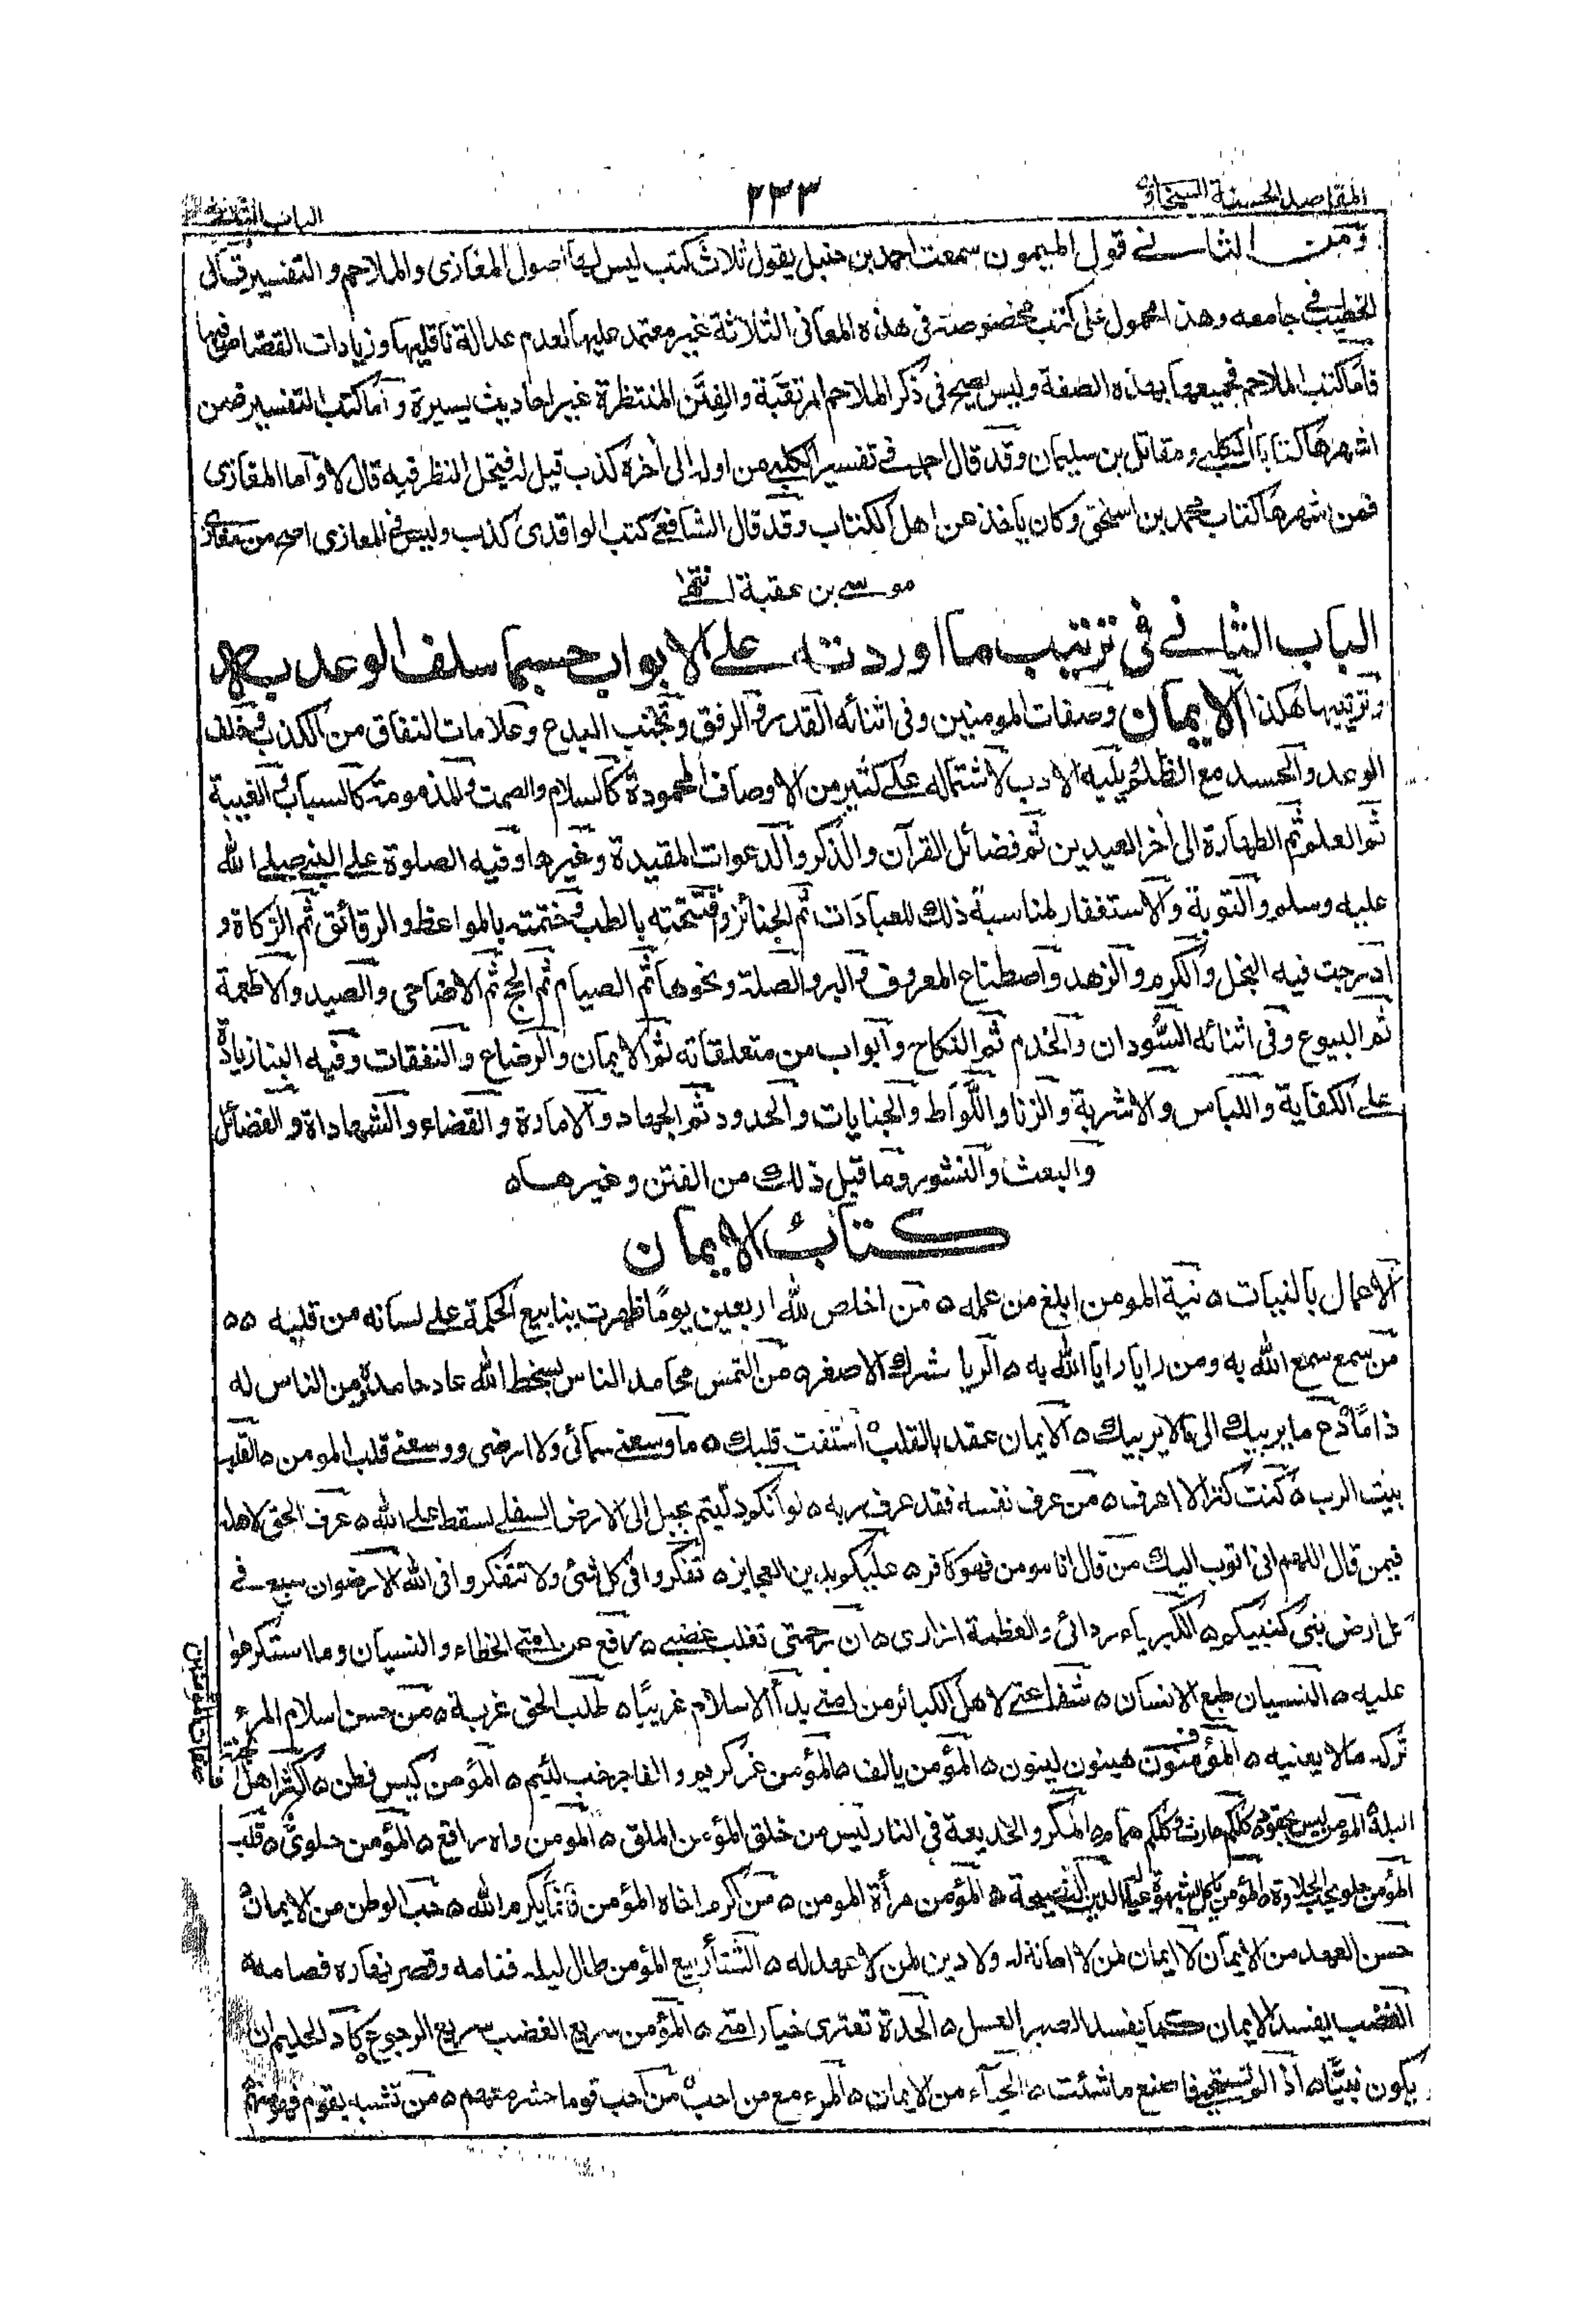 المقاصد الحسنة للسخاوي
٢٣٣
الباب الثاني
ومن الثاني قول الميمون سمعت احمد بن حنبل يقول ثلاث كتب ليس لها اصول المغازى والملاحم والتفسير قال
الخطيب فى جامعه وهذا محمول على كتب مخصوصة فى هذه المعانى الثلاثة غير معتمد عليها لعدم عدالة ناقليها وزيادات القصاص فيها
فاما كتب الملاحم فجميعها بهذه الصفة وليس يصح فى ذكر الملاحم المرتقبة والفتن المنتظرة غير احاديث يسيرة واما كتب التفسير فمن
اشهرها كتابا الكلبى ومقاتل بن سليمان وقد قال احمد فى تفسير الكلبى من اوله الى اخره كذب قيل له فيحل النظر فيه قال لا واما المغازى
فمن اشهرها كتاب محمد بن اسحق وكان يأخذ من اهل الكتاب وقد قال الشافعى كتب الواقدى كذب وليس فى المغازى اصح من مغازى
موسى بن عقبة انتهى
الباب الثانى فى ترتيب ما اوردته على الابواب حسبما سلف الوعد به
وترتيبها هكذا الايمان وصفات المومنين وفى اثنائه القدر والرفق وتجنب البدع وعلامات النفاق من الكذب وخلف
الوعد والحسد مع الظلم ويليه الادب لاشتماله على كثير من الاوصاف المحمودة كالسلام والصمت والمذمومة كالسباب والغيبة
ثم العلم ثم الطهارة الى اخر العيدين ثم فضائل القرآن والذكر والدعوات المقيدة وغيرها وفيه الصلوة على النبى صلى الله
عليه وسلم والتوبة والاستغفار لمناسبة ذلك للعبادات ثم الجنائز وافتتحته بالطب وختمته بالمواعظ والرقائق ثم الزكاة و
ادرجت فيه البخل والكرم والزهد واصطناع المعروف والبر والصلة ونحوها ثم الصيام ثم الحج ثم الاضاحى والصيد والاطعمة
ثم البيوع وفى اثنائه السودان والخدم ثم النكاح وابواب من متعلقاته ثم الايمان والرضاع والنفقات وفيه البنا زيادة
على الكفاية واللباس والاشربة والزنا واللواط والجنايات والحدود ثم الجهاد والامارة والقضاء والشهاداة والفضائل
والبعث والنشور وما قبل ذلك من الفتن وغيرها ه
كتاب الايمان
الاعمال بالنيات ه نية المومن ابلغ من عمله ه من اخلص لله اربعين يوما ظهرت ينابيع الحكمة على لسانه من قلبه ه ه
من سمع سمع الله به ومن رايا رايا الله به ه الريا شرك الاصغر ه من التمس محامد الناس بسخط الله عاد حامده من الناس له
ذاما ه دع ما يريبك الى ما لا يريبك ه الايمان عقد بالقلب ه استفت قلبك ه ما وسعنى سمائى ولا ارضى ووسعنى قلب المومن ه القلب
بيت الرب ه كنت كنزا لا اعرف ه من عرف نفسه فقد عرف ربه ه لو انكم دليتم بحبل الى الارض السفلى لسقط على الله ه عرف الحق لاهله
فيمن قال اللهم انى اتوب اليك من قال انا مومن فهو كافر ه عليكم بدين العجايز ه تفكروا فى كل شئ ولا تتفكروا فى الله الارضون سبع فى
كل ارض نبى كنبيكم ه الكبرياء ردائى والعظمة ازارى ه ان رحمتى تغلب غضبى ه رفع عن امتى الخطاء والنسيان وما استكرهوا
عليه ه النسيان طبع الانسان ه شفاعتى لاهل الكبائر من امتى بدأ الاسلام غريبا ه طلب الحق غربة ه من حسن اسلام المرء
تركه ما لا يعنيه ه المؤمنون هينون لينون ه المؤمن يالف ه المؤمن غر كريم والفاجر خب لئيم ه المؤمن كيس فطن ه اكثر اهل الجنة
البله ه المؤمن ليس بحقود ه كلكم حارث وكلكم همام ه المكر والخديعة فى النار ليس من خلق المؤمن الملق ه المومن واه راقع ه المؤمن حلوى ه قلب
المؤمن حلو يحب الحلاوة ه المؤمن ياكل بشهوة عياله الدين النصيحة ه المؤمن مرأة المومن ه من اكرم اخاه المؤمن فانما يكرم الله ه حب الوطن من الايمان ه
حسن العهد من الايمان لا ايمان لمن لا امانة له ولا دين لمن لا عهد له ه الشتا ربيع المؤمن طال ليله فقامه وقصر نهاره فصامه ه
الغضب يفسد الايمان كما يفسد الصبر العسل ه الحدة تعترى خيار امتى ه المؤمن سريع الغضب سريع الرجوع ه كاد الحليم ان
يكون نبيا ه اذا لم تستحى فاصنع ما شئت ه الحيآء من الايمان ه المرء مع من احب ه من احب قوما حشر معهم ه من تشبه بقوم فهو منهم
صفات المؤمنين